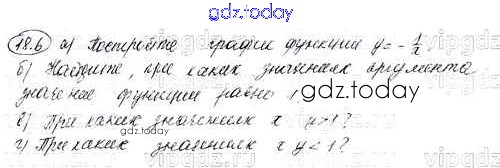 gdz.today
18.6 а) Постройте график функции y = -1/x
б) Найдите, при каких значениях аргумента
значение функции равно 1.
gdz.today
в) При каких значениях x y > 1?
gdz.today
г) При каких значениях x y < 1?